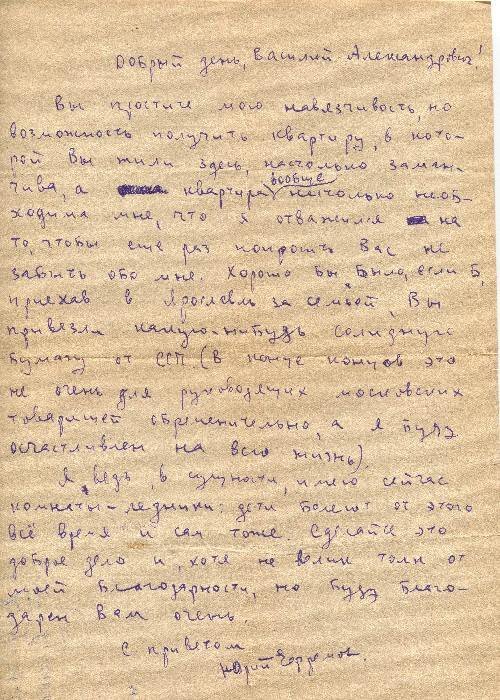 Добрый день, Василий Александрович!
Вы простите мою навязчивость, но
возможность получить квартиру, в кото-
рой Вы жили здесь, настолько заман-
чива, а квартира вообще настолько необ-
ходима мне, что я отважился на
то, чтобы еще раз попросить Вас не
забыть обо мне. Хорошо бы было, если б,
приехав в Ярославль за семьей, Вы
привезли какую-нибудь солидную
бумагу от ССП. (В конце концов это
не очень для руководящих московских
товарищей обременительно, а я буду
осчастливлен на всю жизнь).
Я, ведь, в сущности, имею сейчас
комнаты-ледники: дети болеют от этого
всё время и сам тоже. Сделайте это
доброе дело и, хотя не велик толк от
моей благодарности, но буду благо-
дарен Вам очень.
С приветом
Юрий Ефремов